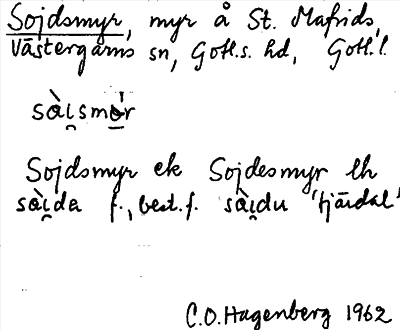 Sojdsmyr, myr å St. Mafrids,
Västergarns sn, Gotl.s. hd, Gotl. l.
sàı̯smǝ̀r
Sojdsmyr ek Sojdesmyr lh
sàı̯da f., best. f. sàı̯du 'tjärdal'
C.O. Hagenberg 1962